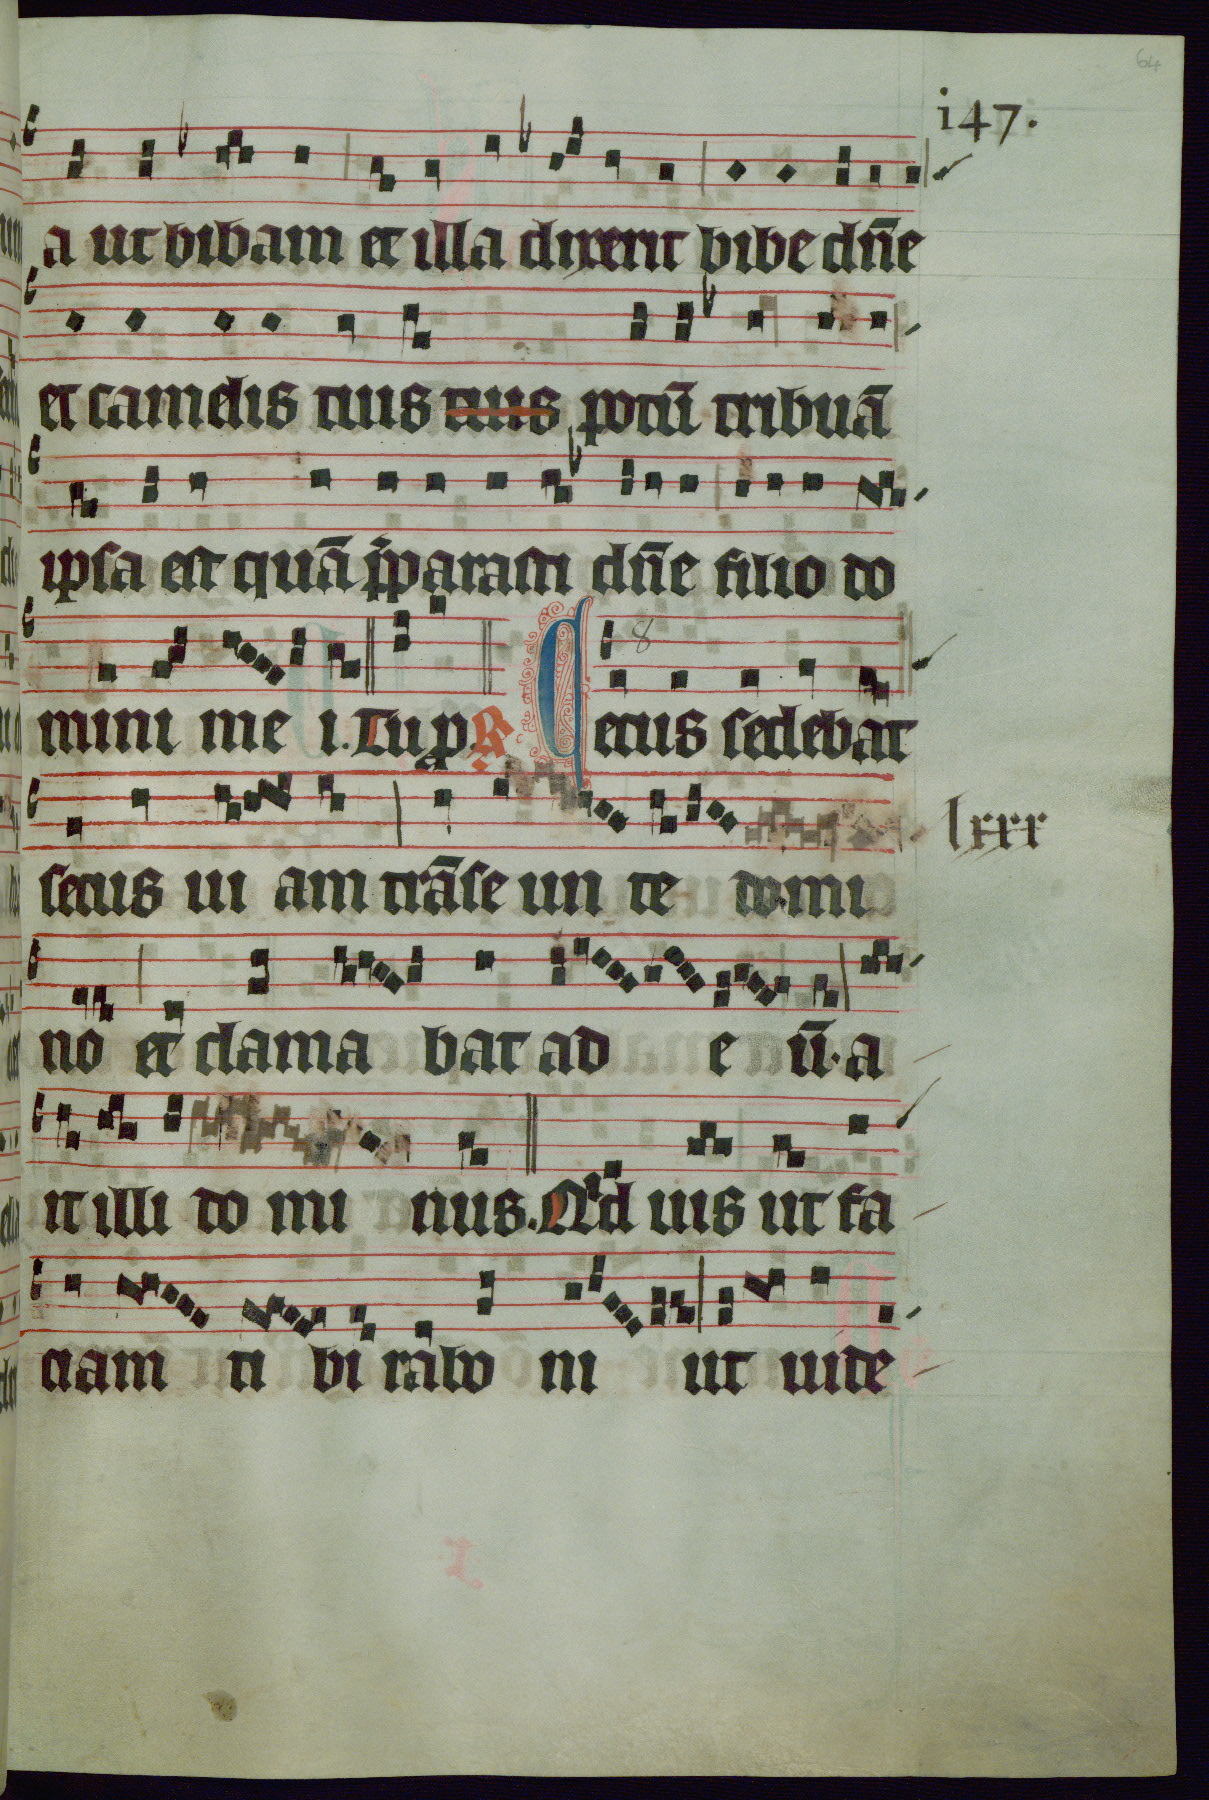 64
i47.
a ut bibam et illa dixerit bibe dn̄e
et camelis tuis tuis potū tribuā
ipsa est quā p̄parasti dn̄e filio do
mini me i. Tu p. R 8 Cecus sedebat
secus ui am trāse un te do mi
lxxx
no et clama bat ad e ū. a
it illi do mi nus. Qid uis ut fa
ciam ti bi rabo ni ut uide